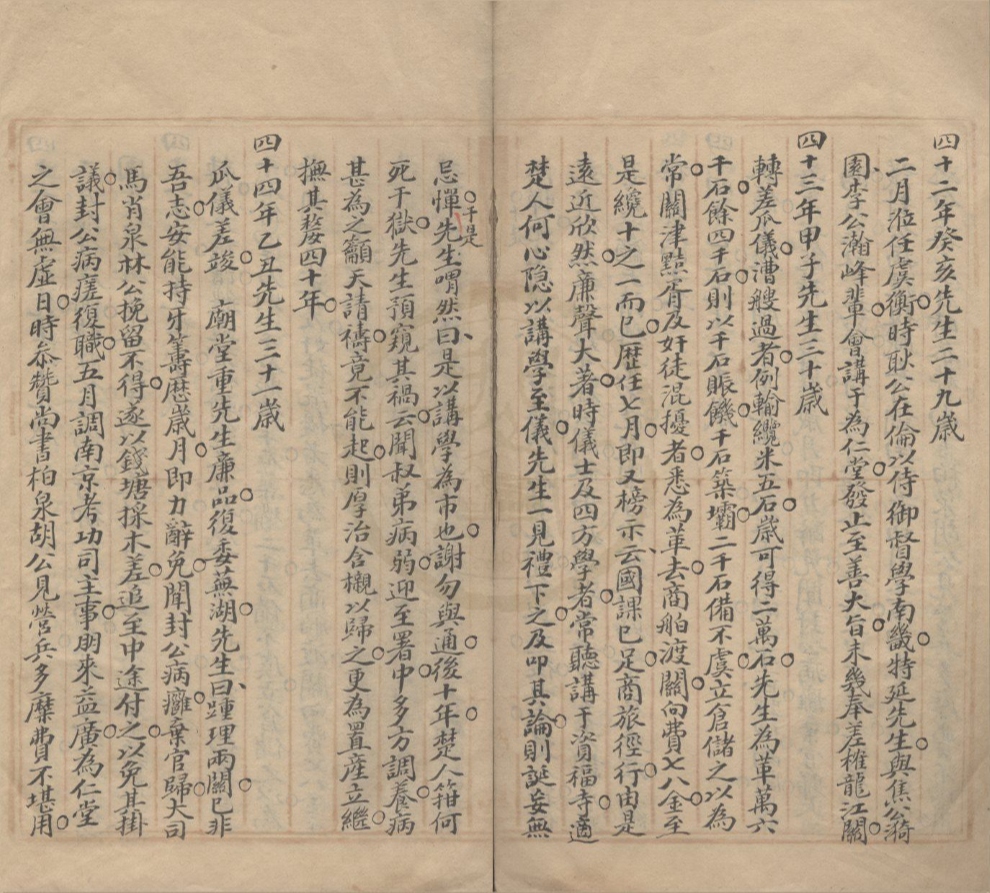 四十二年癸亥先生二十九歲
二月涖任虞衡時耿公在倫以侍御督學南畿特延先生與焦公漪
園李公瀚峰輩會講于為仁堂發止至善大旨未幾奉差榷龍江關
四十三年甲子先生三十歲
轉差瓜儀漕艘過者例輸纜米五石歲可得二萬石先生為革萬六
千石餘四千石則以千石賑饑千石築壩二千石備不虞立倉儲之以為
常關津黠胥及奸徒混擾者悉為革去商舶渡關向費七八金至
是纔十之一而已歷任七月即又榜示云國課已足商旅徑行由是
遠近欣然廉聲大著時儀士及四方學者常聽講于資福寺適
楚人何心隐以講學至儀先生一見禮下之及叩其論則誕妄無
忌憚先生喟然曰是以講學為市也謝勿與通後十年楚人箝何
于是
死于獄先生預窺其禍云聞叔弟病弱迎至署中多方調養病
甚為之籲天請禱竟不能起則厚治含櫬以歸之更為置産立繼
撫其嫠四十年
四十四年乙丑先生三十一歲
瓜儀差竣 廟堂重先生廉品復委蕪湖先生曰踵理兩關已非
吾志安能持牙籌歷歲月即力辭免聞封公病癱棄官歸大司
馬肖泉林公挽留不得遂以錢塘採木差追至中途付之以免其掛
議封公病痊復職五月調南京考功司主事朋來益廣為仁堂
之會無虛日時叅贊尚書柏泉胡公見營兵多縻費不堪用